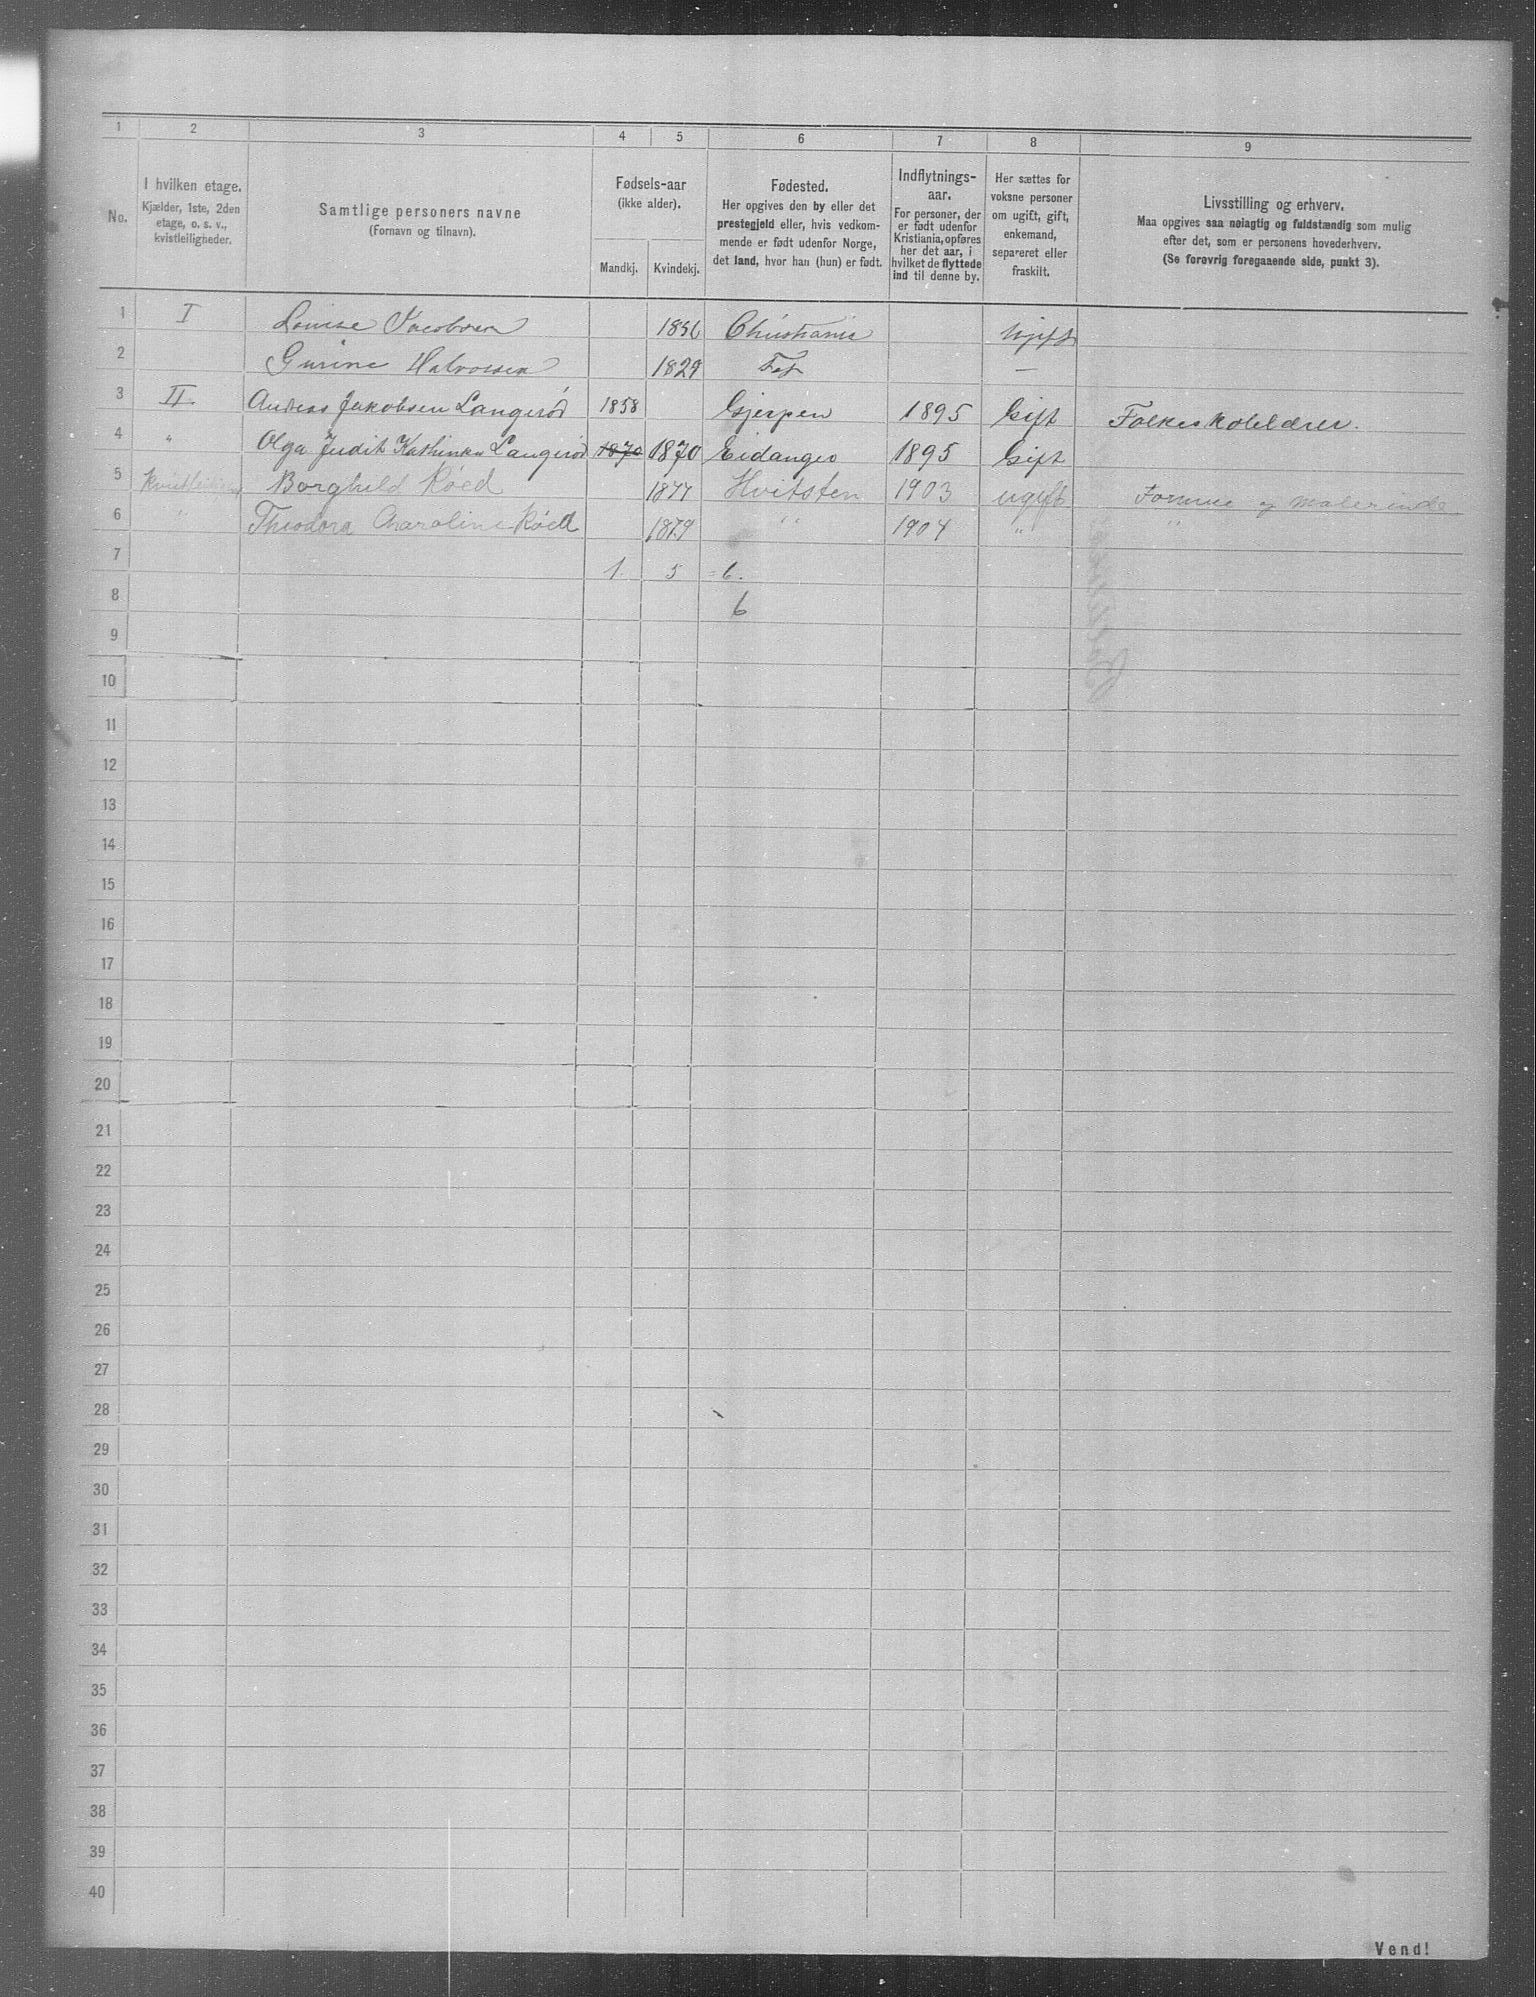 1 2 3 4 5 6 7 8 9
No.
I hvilken etage.
Kjælder, 1ste, 2den
etage, o. s. v.,
kvistleiligheder.
Samtlige personers navne
(Fornavn og tilnavn).
Fødsels-aar
(ikke alder).
Mandkj. Kvindekj.
Fødested.
Her opgives den by eller det
prestegjeld eller, hvis vedkom-
mende er født udenfor Norge,
det land, hvor han (hun) er født.
Indflytnings-
aar.
For personer, der
er født udenfor
Kristiania, opføres
her det aar, i
hvilket de flyttede
ind til denne by.
Her sættes for
voksne personer
om ugift, gift,
enkemand,
separeret eller
fraskilt.
Livsstilling og erhverv.
Maa opgives saa nøiagtig og fuldstændig som mulig
efter det, som er personens hovederhverv.
(Se forøvrig foregaaende side, punkt 3).
1 I Louise Jacobsen 1856 Christiania Ugift
2 Gurine Halvorsen 1829 Fet —
3 II. Andreas Jakobsen Langerød 1858 Gjerpen 1895 Gift Folkeskolelærer.
4 " Olga Judit Kathinka Langerød 1870 1870 Eidanger 1895 Gift
5 Borghild Röed 1877 Hvitsten 1903 ugift Formue og malerinde
6 " Theodora Charoline Röed 1879 " 1904 " "
7 1. 5 = 6.
8 6
9
10
11
12
13
14
15
16
17
18
19
20
21
22
23
24
25
26
27
28
29
30
31
32
33
34
35
36
37
38
39
40
Vend!